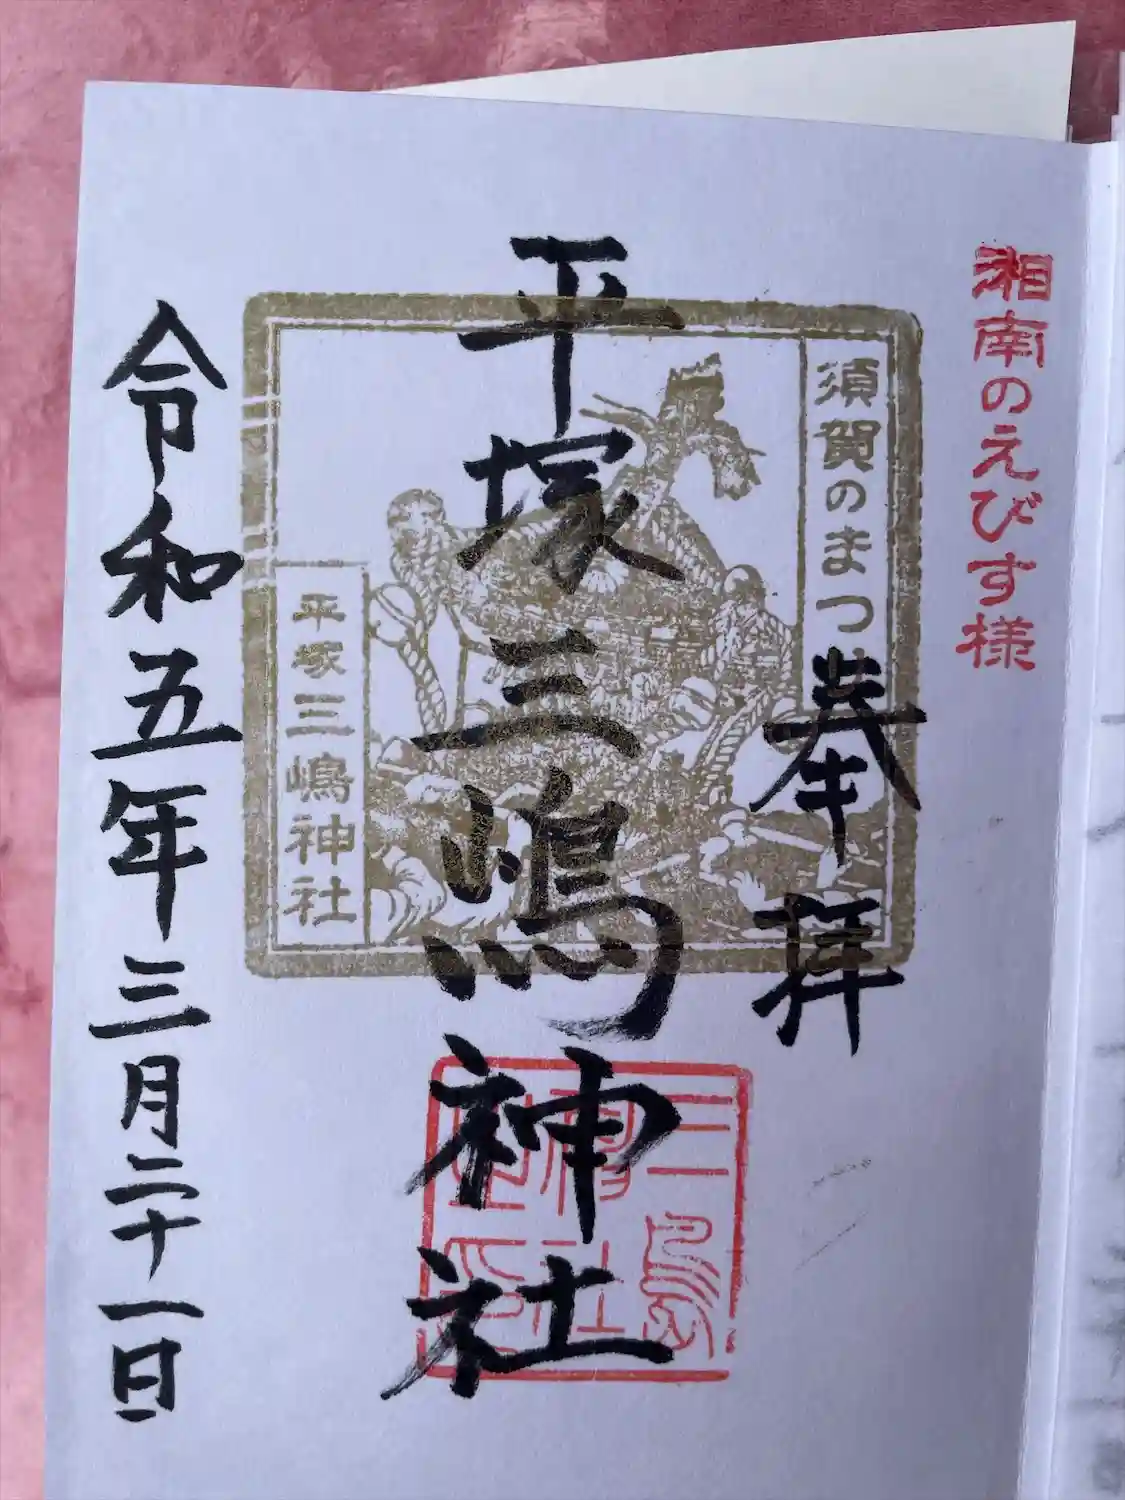 湘南のえびす様
須賀のまつり
奉拝
平塚三嶋神社
三島
神社
之印
平塚三嶋神社
令和五年三月二十一日